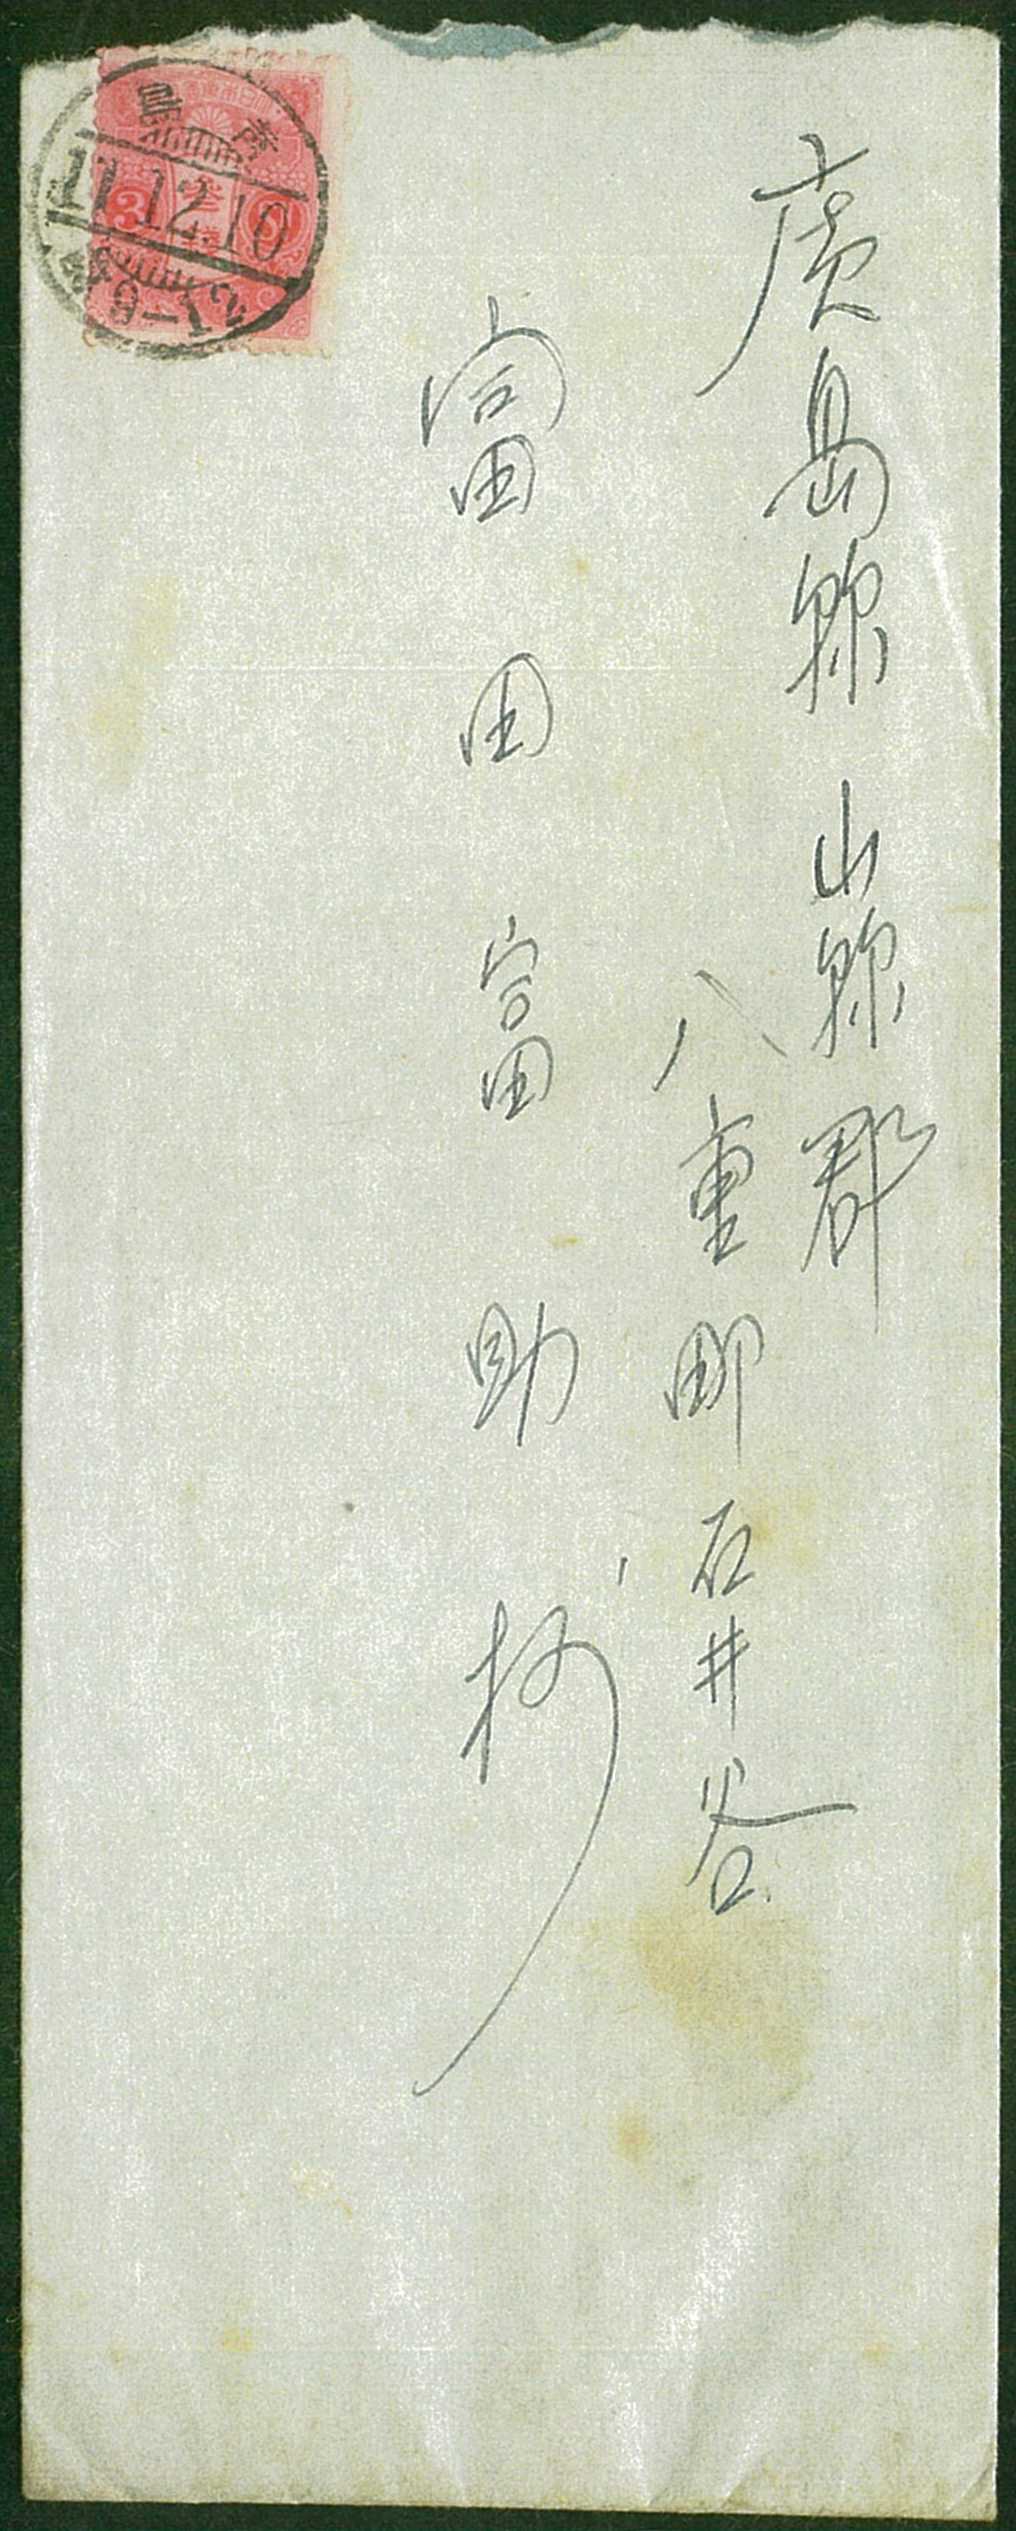 廣島縣山縣郡
八重町石井谷
富田富助様
青島
11.12.10
9-12
3
参